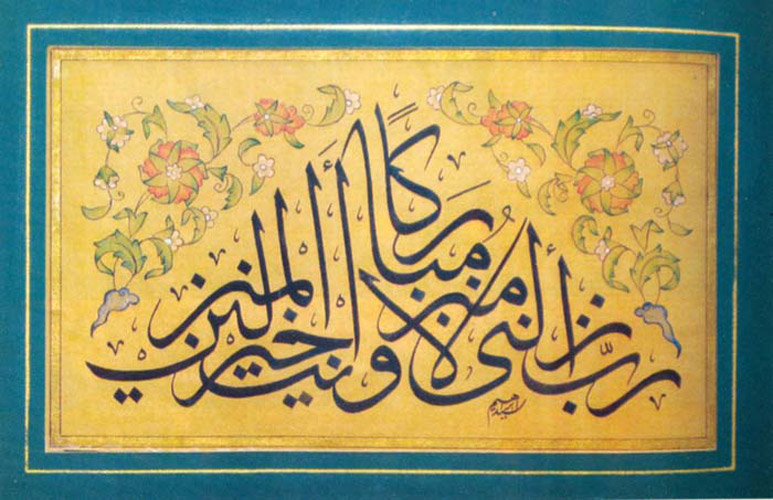 رَبِّ أَنزلني منزلًا مُباركًا وأَنت خير المنزلين
سيد ابراهيم